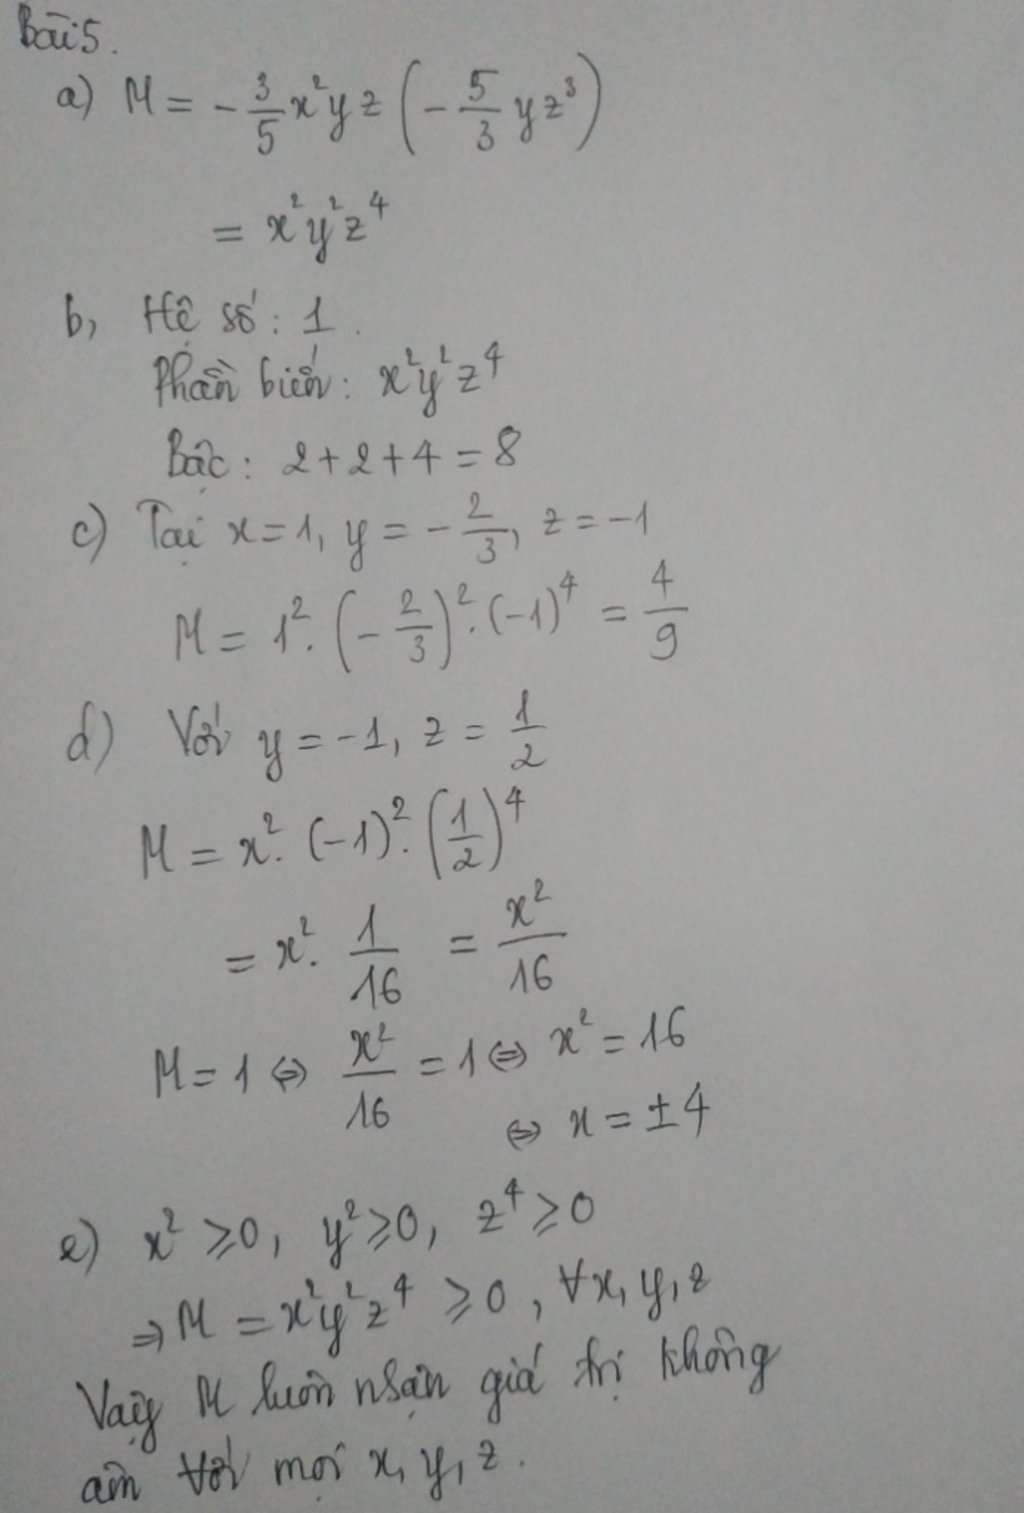 Bài 5.
a) M = -3/5 x²yz (-5/3 yz³)
= x²y²z⁴
b, Hệ số: 1.
Phần biến: x²y²z⁴
Bậc: 2+2+4=8
c) Tại x=1, y = -2/3, z = -1
M = 1². (-2/3)². (-1)⁴ = 4/9
d) Với y = -1, z = 1/2
M = x². (-1)². (1/2)⁴
= x². 1/16 = x²/16
M = 1 ⇔ x²/16 = 1 ⇔ x² = 16
⇔ x = ±4
e) x² ⩾ 0, y² ⩾ 0, z⁴ ⩾ 0
⇒ M = x²y²z⁴ ⩾ 0, ∀x, y, z
Vậy M luôn nhận giá trị không
âm với mọi x, y, z.